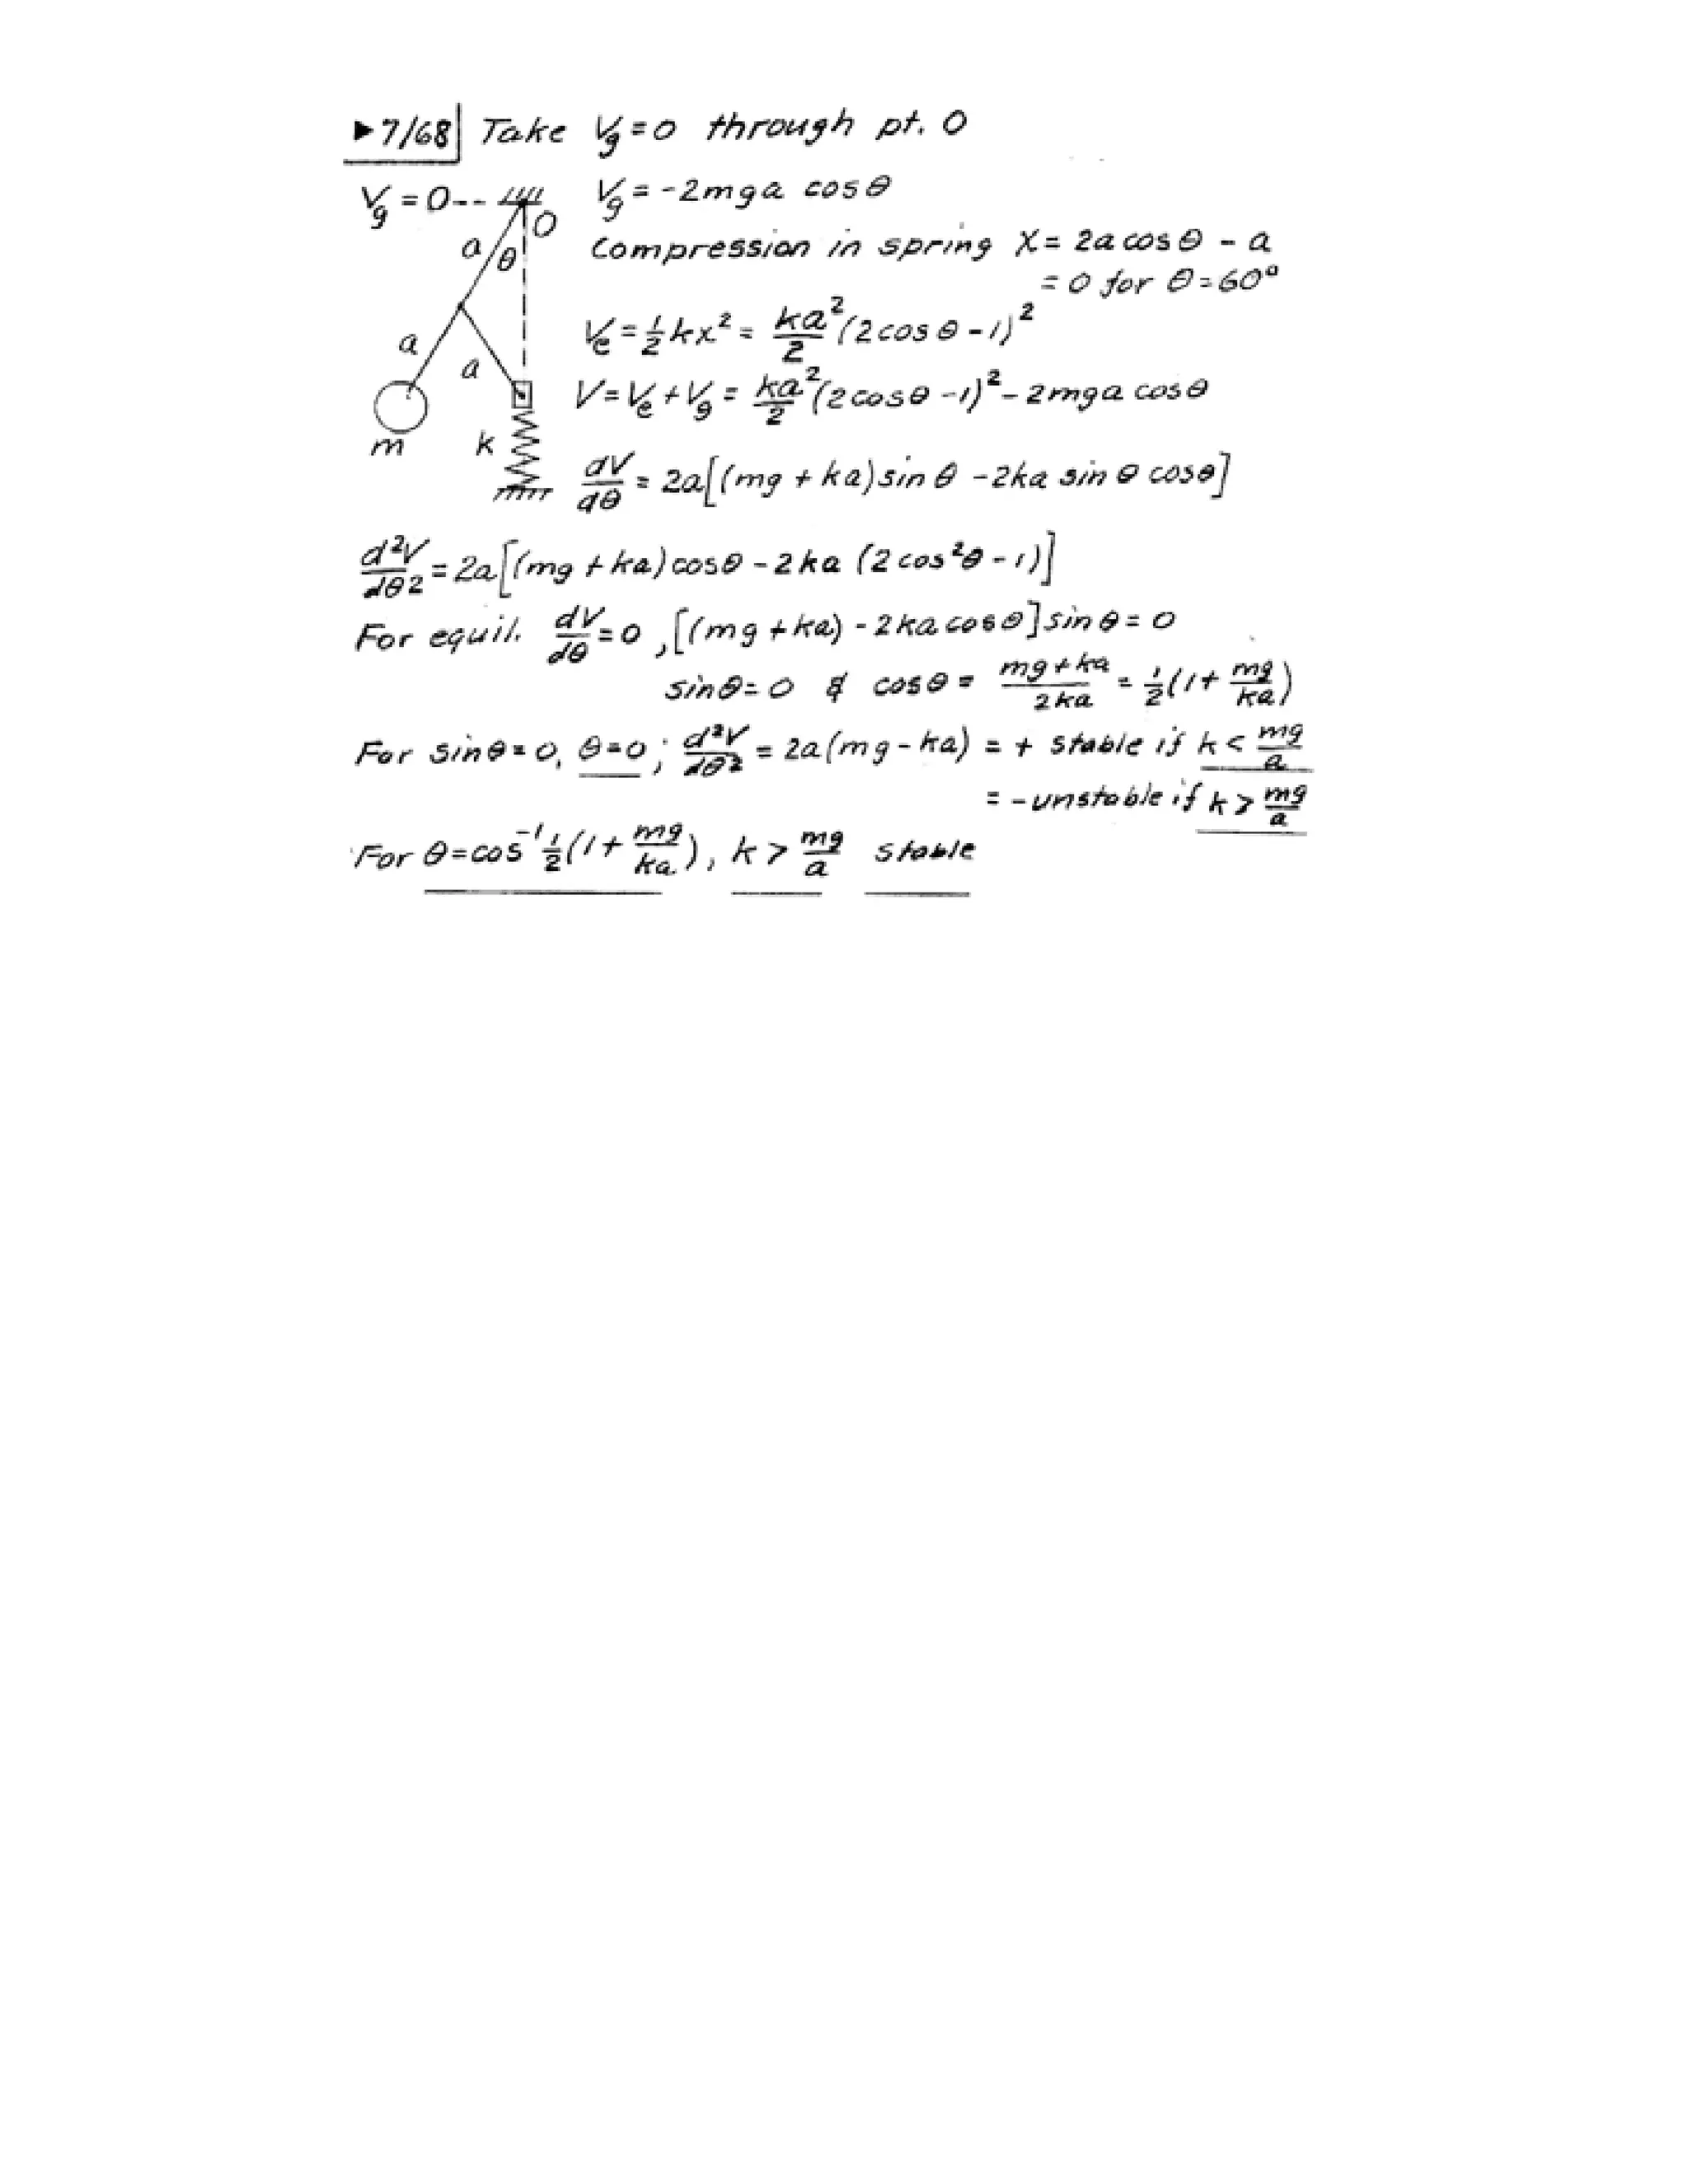 ▸7/68 Take Vg = 0 through pt. O
Vg = 0-- O Vg = -2mga cosθ
a θ Compression in spring X = 2a cosθ - a
= 0 for θ = 60°
a a Ve = 1/2 kx² = ka²/2 (2cosθ - 1)²
V = Ve + Vg = ka²/2 (2cosθ - 1)² - 2mga cosθ
m k
dV/dθ = 2a[(mg + ka)sinθ - 2ka sinθ cosθ]
d²V/dθ² = 2a[(mg + ka)cosθ - 2ka (2cos²θ - 1)]
For equil. dV/dθ = 0, [(mg + ka) - 2ka cosθ]sinθ = 0
sinθ = 0 & cosθ = mg + ka/2ka = 1/2(1 + mg/ka)
For sinθ = 0, θ = 0; d²V/dθ² = 2a(mg - ka) = + stable if k < mg/a
= - unstable if k > mg/a
For θ = cos⁻¹ 1/2(1 + mg/ka), k > mg/a stable